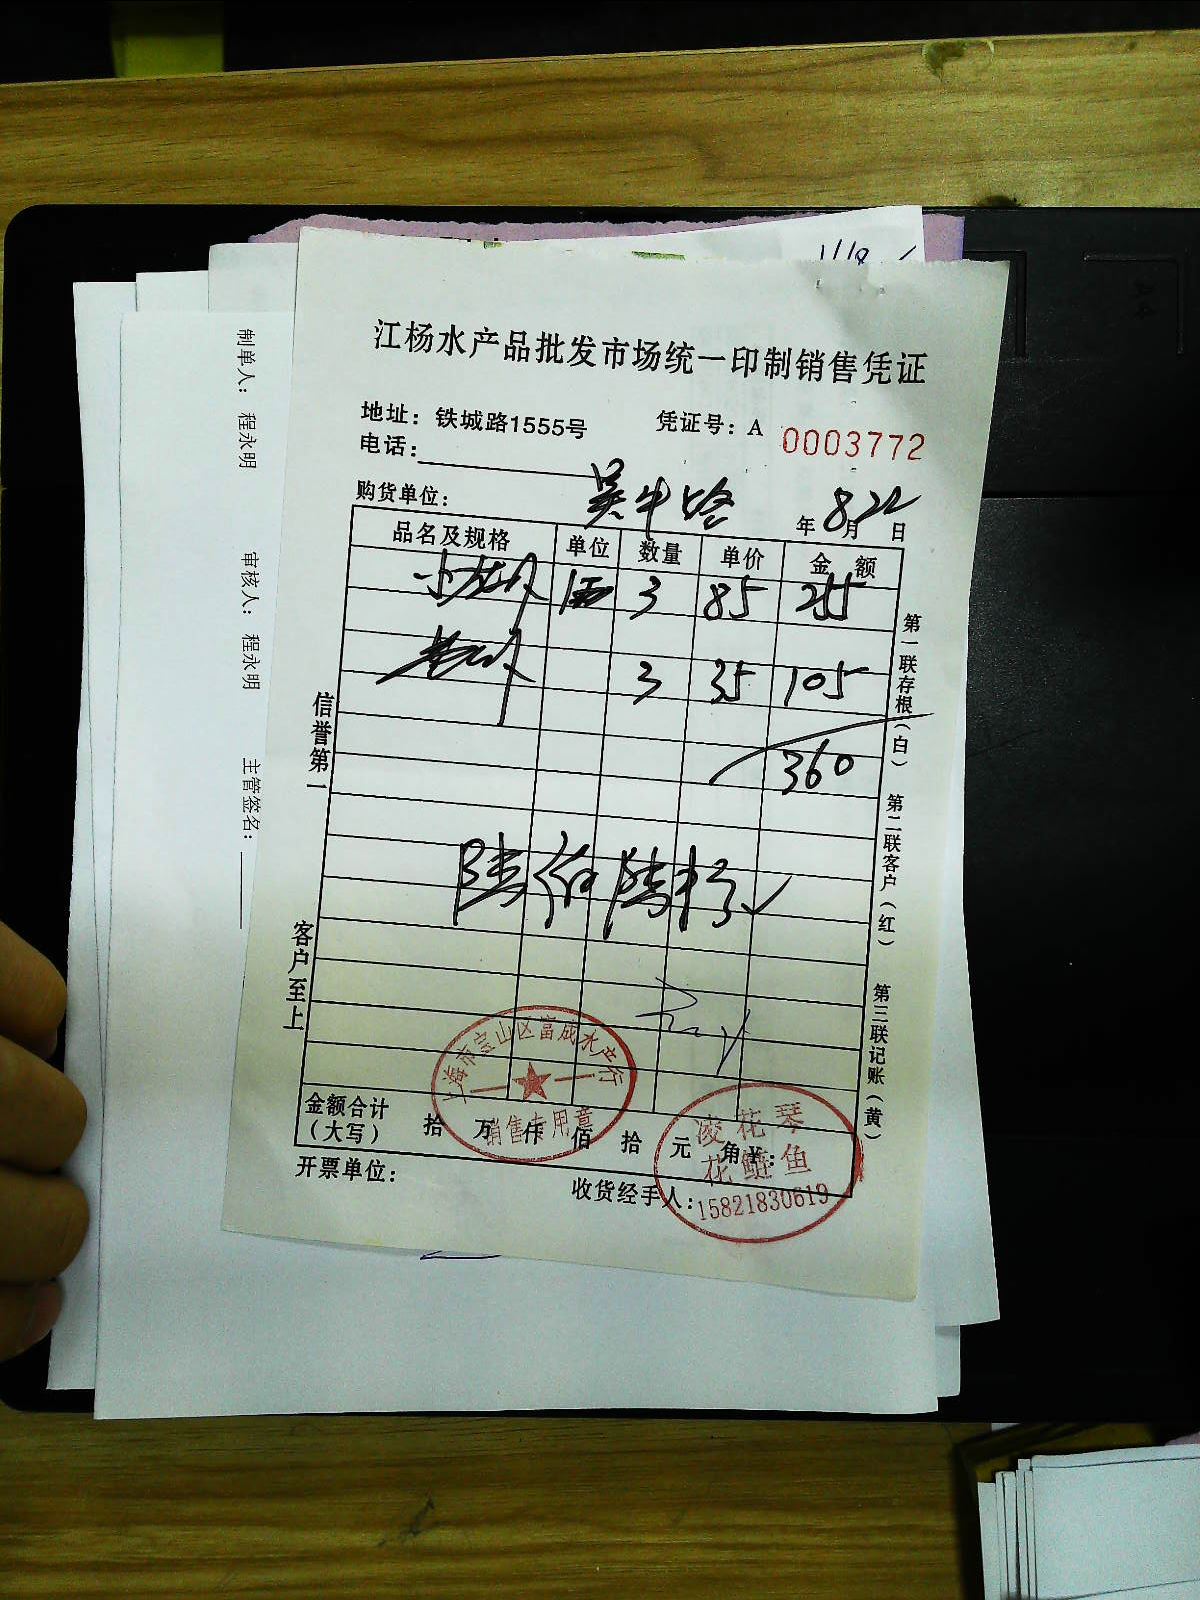 江杨水产品批发市场统一印制销售凭证
地址：铁城路1555号 凭证号：A 0003772
电话：
购货单位： 年8月22日
品名及规格 单位 数量 单价 金 额
3 85 255
3 35 105
360
金额合计（大写） 拾 万 仟 佰 拾 元 角 ¥：
开票单位： 收货经手人：
信誉第一
客户至上
第一联存根（白）
第二联客户（红）
第三联记账（黄）
上海市宝山区富成水产行
销售专用章
凌花琴
花鲢鱼
15821830619
制单人： 程永明 审核人： 程永明 主管签名：